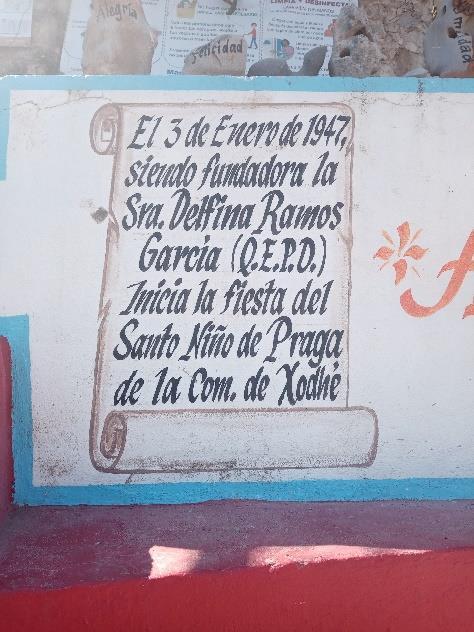 Alegría
felicidad
LIMPIA Y DESINFECTA
El 3 de Enero de 1947,
siendo fundadora la
Sra. Delfina Ramos
Garcia (Q.E.P.D.)
Inicia la fiesta del
Santo Niño de Praga
de la Com. de Xodhé